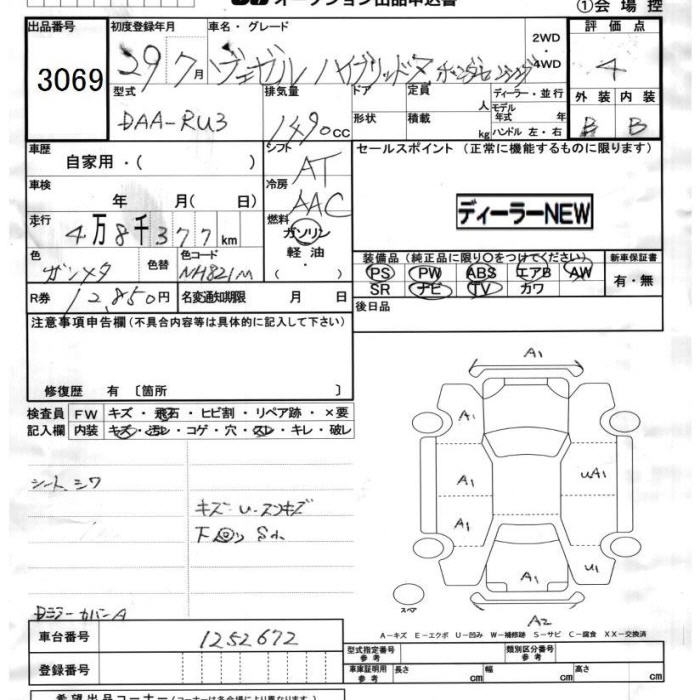 オークション出品申込書
①会場控
出品番号
3069
初度登録年月
29 7月
車名・グレード
ヴェゼル ハイブリッドZ ホンダセンシング
2WD
4WD
評価点
4
型式
DAA-RU3
排気量
1490cc
ドア
形状
定員 人
積載 kg
ディーラー・並行
モデル年式 年
ハンドル 左・右
外装
B
内装
B
車歴
自家用・( )
シフト
AT
セールスポイント (正常に機能するものに限ります)
ディーラーNEW
車検
年 月( 日)
冷房
AAC
走行
4万8千377km
燃料
ガソリン
軽油
( ・ )
色
ガンメタ
色替
色コード
NH821M
装備品 (純正品に限り○をつけてください)
PS PW ABS エアB AW
SR ナビ TV カワ
新車保証書
有・無
R券
12,850円
名変通知期限 月 日
後日品
注意事項申告欄(不具合内容等は具体的に記入して下さい)
修復歴 有 〔箇所 〕
検査員
記入欄
FW キズ・飛石・ヒビ割・リペア跡・×要
内装 キズ・汚レ・コゲ・穴・スレ・キレ・破レ
シートシワ
キズ・U・スリキズ
A1
A1
A1
A1
UA1
U1
A1
A2
スペア
DミラーカバーA
A-キズ E-エクボ U-凹み W-補修跡 S-サビ C-腐食 XX-交換済
車台番号
1252672
登録番号
型式指定番号
参考
類別区分番号
参考
車庫証明用
参考
長さ cm
幅 cm
高さ cm
希望出品コーナー(コーナーは各会場により異なります)